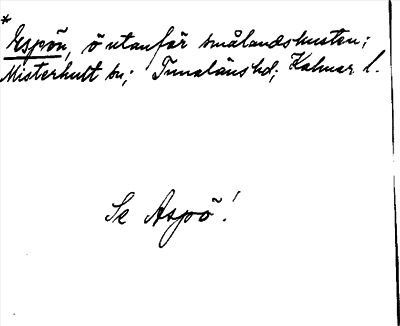 *
Espön, ö utanför smålandskusten;
Misterhult sn; Tunaläns hd; Kalmar l.
Se Aspö!